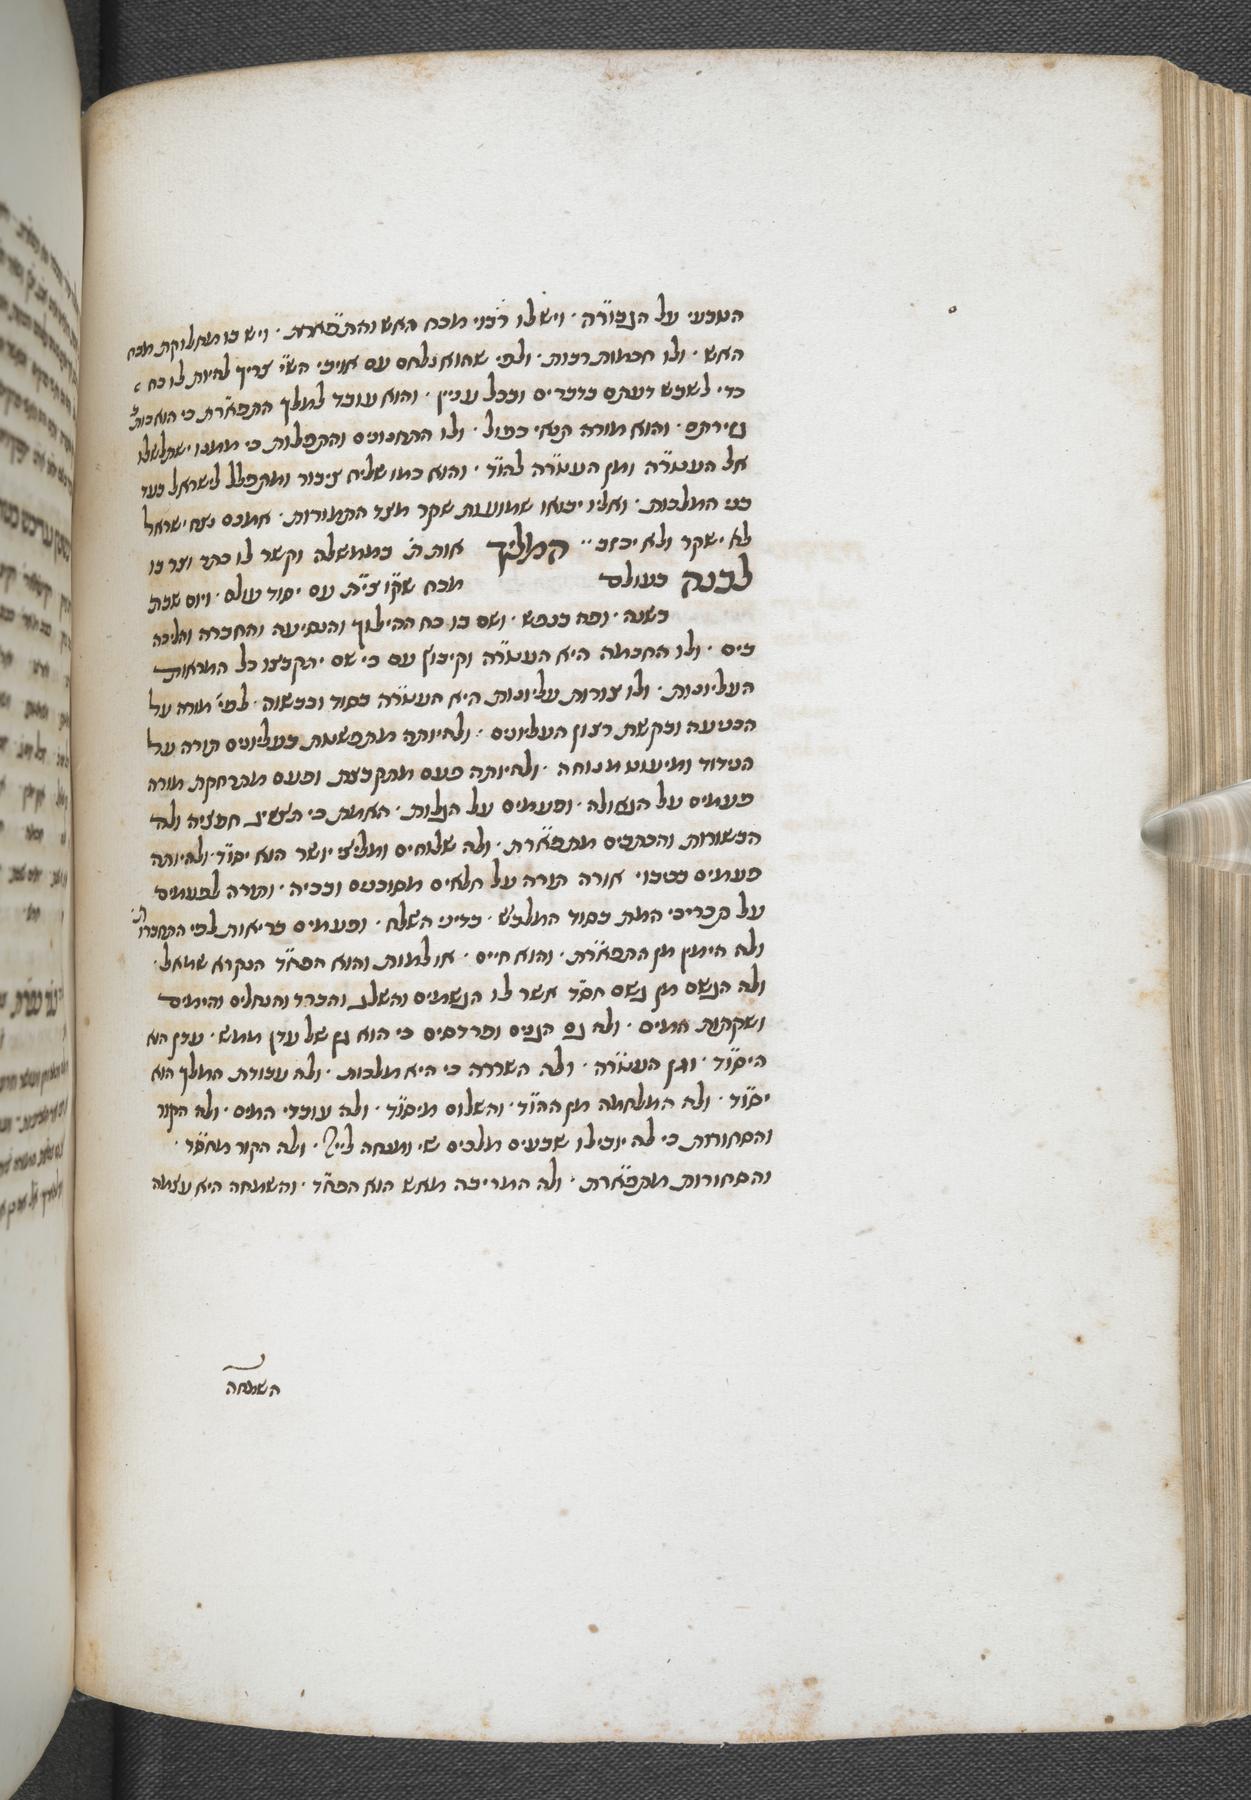 הטבעי על הגבורה · ויש לו רבוי מכח האש והתפארת · ויש בו מחלוקת מכח
האש · ולו חכמות רבות · ולפי שהוא נלחם עם אויבי השי׳ צריך להיות לו כח
כדי לשבש דעתם בדברים ובכל ענין · והוא עובד למלך התפארת כי הוא
גזירתם · והוא מורה קנאי · ולו התחנונים והתפלות כי ממנו ישתלשלו
אל העטרה ומן העטרה להוד · והוא כמו שליח ציבור ומתפלל לישראל בעד
בני המלכות · ואליו יבואו שמועות שקר מצד התמורות · אמנם נצח ישראל
לא ישקר ולא יכזב ·· המליך אות ת׳ בממשלה וקשר לו כתר וצר בו
לבנה בעולם מכח שקוצי״ת עם יסוד עולם · ויום שבת
בשנה · ופה בנפש · ושם בו כח ההילוך והנסיעה והחברה והליכה
בים · ולו החכמה היא העטרה וקיבוץ עם כי שם יתקבצו כל המראות
העליונות · ולו צורות עליונות היא העטרה בסוד ובבשוה · לפי׳ מורה על
הנסיעה ובקשת רצון העליונים · ולהיותה מתפשטת בעליונים תורה על
הנידוד ומיעוט מנוחה · ולהיותה פעם מתקבצת ופעם מתרחקת מורה
פעמים על הגאולה · ופעמים על הגלות · האמת כי חפציה ולה
הבשורות והכתבים מתפארת · ולה שלוחים ומליצי יושר הוא יסוד · ולהיותה
פעמים בטבוי אורה תורה על חלאים מסוכנים ובכיה · ותורה לפעמים
על תכריכי המת בסוד המלבש · בדיני השלח · ופעמים בריאות לפי התחברו׳
ולה הימין מן התפארת · והוא חיים · או למות והוא הפחד הנקרא שמאל ·
ולה הגשם מן גשם חסד אשר לו הגשמים והשלג והברד והנחלים והימים
ושקתות המים · ולה גם הגנים ופרדסים כי הוא גן של עדן ממש · עדן הוא
היסוד · וגן העטרה · ולה השררה כי היא מלכות · ולה עבודת המלך הוא
יסוד · ולה המלחמה מן ההוד · והשלום מיסוד · ולה עוברי המים · ולה הקור
והסחורות כי לה יובילו שבעים מלכים שי ומנחה ליי׳ · ולה הקור מחסד ·
והסחורות מתפארת · ולה המריבה מאש הוא הפחד · והשמחה היא עצמה
השמחה